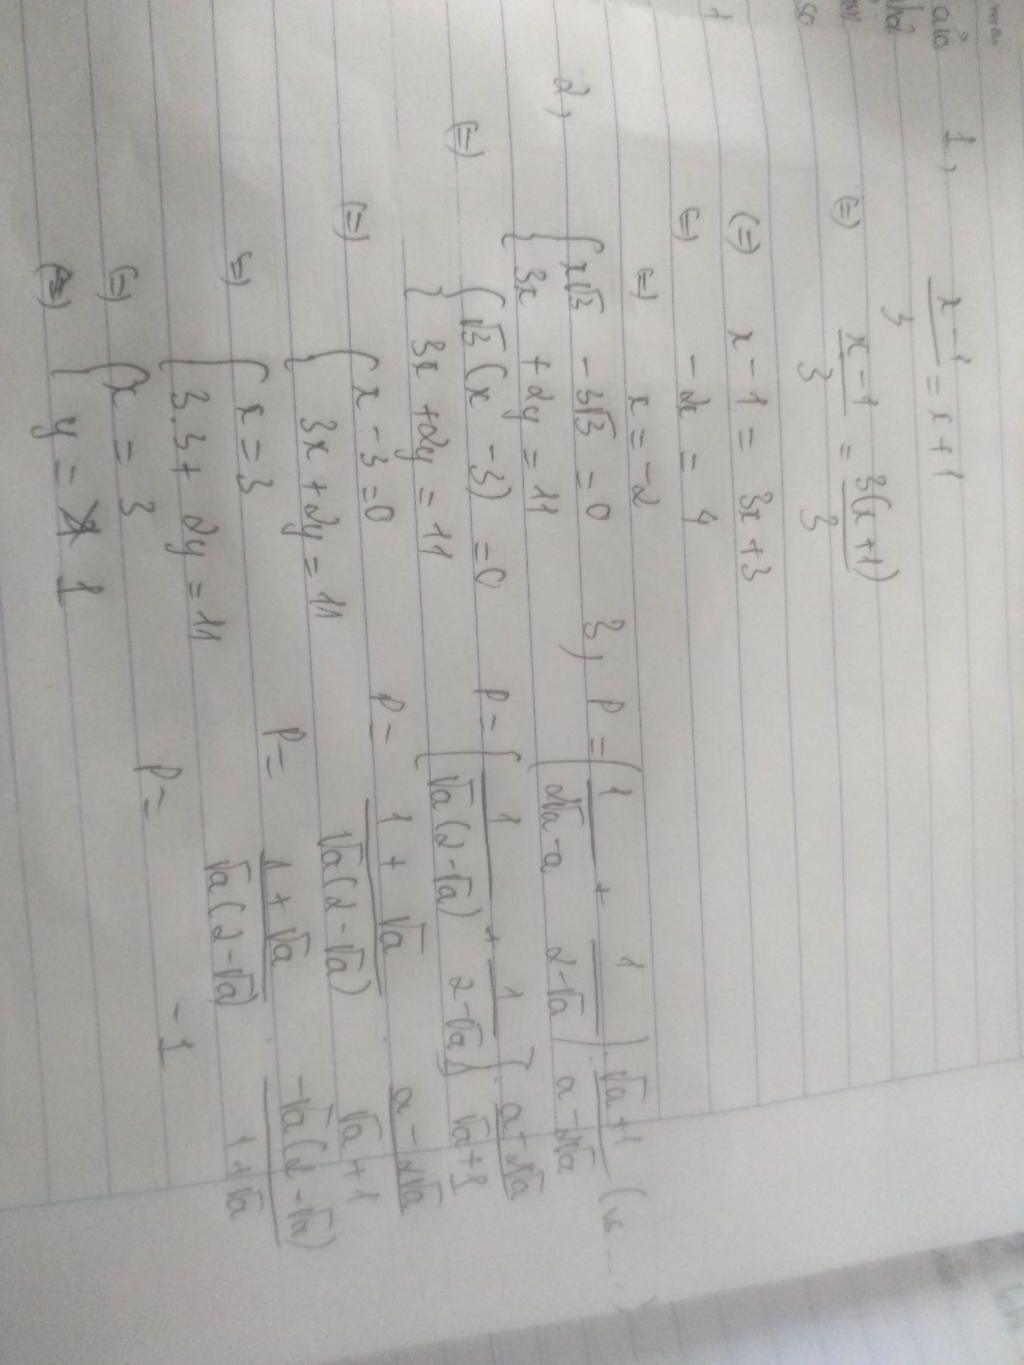 1, x - 1 / 3 = x + 1
(=) x - 1 / 3 = 3(x + 1) / 3
(=) x - 1 = 3x + 3
(=) - 2x = 4
(=) x = -2
2, { x√3 - 3√3 = 0
3x + 2y = 11
(=) { √3 (x - 3) = 0
3x + 2y = 11
(=) { x - 3 = 0
3x + 2y = 11
(=) { x = 3
3.3 + 2y = 11
(=) { x = 3
y = 1
3, P = ( 1 / 2√a - a + 1 / 2 - √a ) : √a + 1 / a - 2√a
P = [ 1 / √a (2 - √a) + 1 / 2 - √a ] . a - 2√a / √a + 1
P = 1 + √a / √a (2 - √a) . a - 2√a / √a + 1
P = 1 + √a / √a (2 - √a) . -√a (2 - √a) / 1 + √a
P = - 1